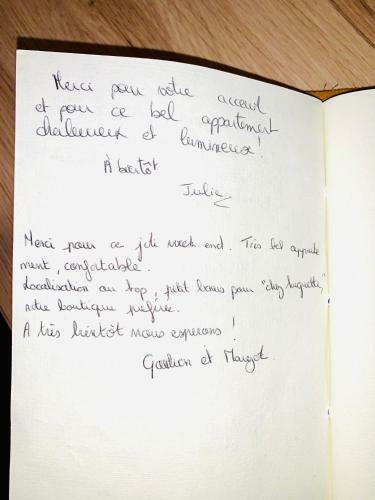 Merci pour votre acceuil
et pour ce bel appartement
chaleureux et lumineux !
À bientôt
Julie
Merci pour ce joli week end. Très bel apparte
ment, confortable.
Localisation au top, petit bonus pour "chez huguette,"
notre boutique préférée.
A très bientôt nous esperons !
et Margot.